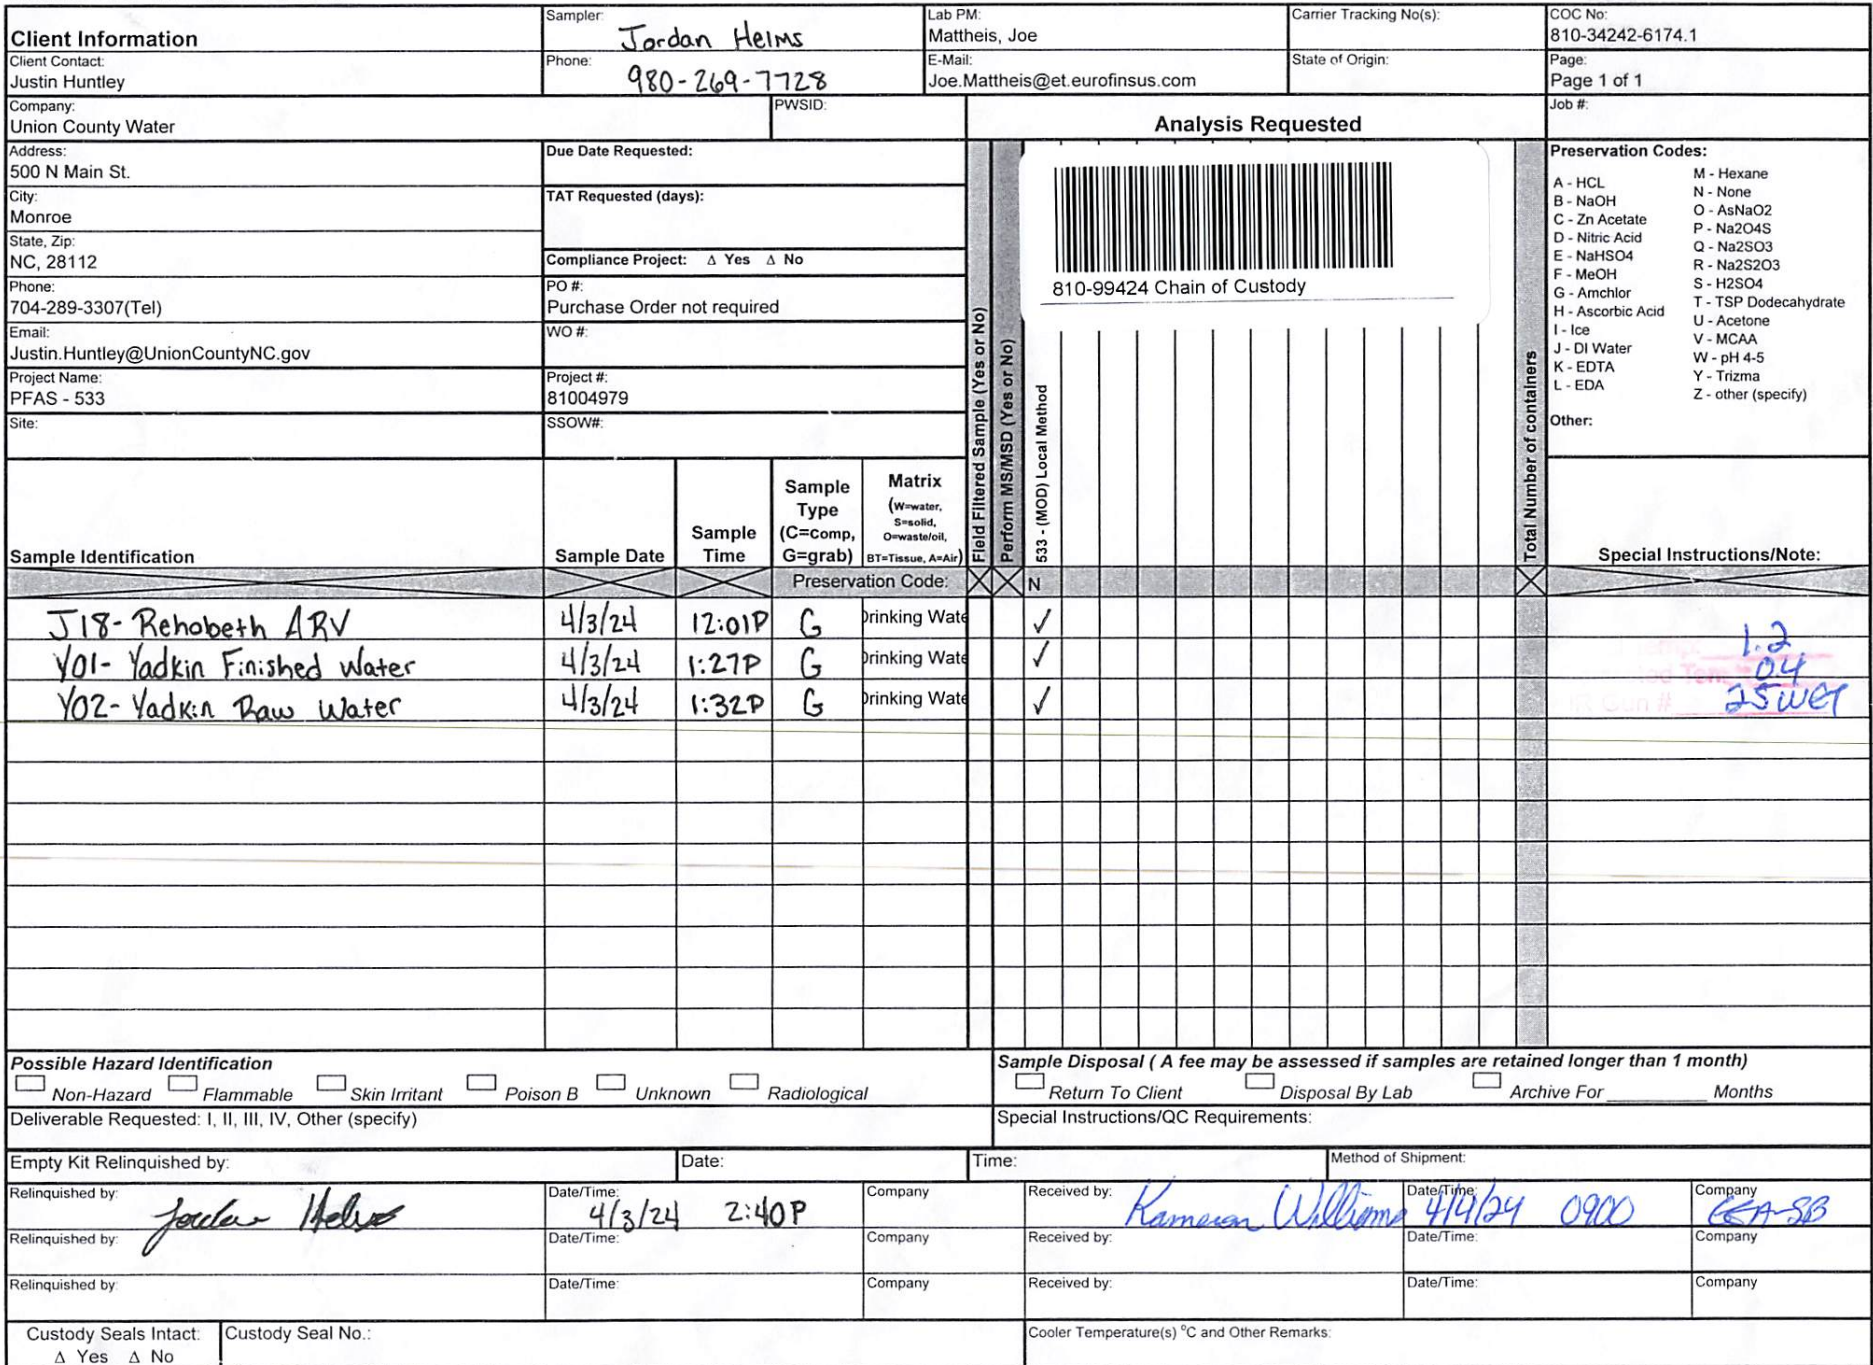 Client Information
Sampler:
Jordan Helms
Lab PM:
Mattheis, Joe
Carrier Tracking No(s):
COC No:
810-34242-6174.1
Client Contact:
Justin Huntley
Phone:
980-269-7728
E-Mail:
Joe.Mattheis@et.eurofinsus.com
State of Origin:
Page:
Page 1 of 1
Company:
Union County Water
PWSID:
Analysis Requested
Job #:
Address:
500 N Main St.
City:
Monroe
State, Zip:
NC, 28112
Phone:
704-289-3307(Tel)
Email:
Justin.Huntley@UnionCountyNC.gov
Project Name:
PFAS - 533
Site:
Due Date Requested:
TAT Requested (days):
Compliance Project: Δ Yes Δ No
PO #:
Purchase Order not required
WO #:
Project #:
81004979
SSOW#:
Field Filtered Sample (Yes or No)
Perform MS/MSD (Yes or No)
533 - (MOD) Local Method
810-99424 Chain of Custody
Total Number of containers
Preservation Codes:
A - HCL
B - NaOH
C - Zn Acetate
D - Nitric Acid
E - NaHSO4
F - MeOH
G - Amchlor
H - Ascorbic Acid
I - Ice
J - DI Water
K - EDTA
L - EDA
M - Hexane
N - None
O - AsNaO2
P - Na2O4S
Q - Na2SO3
R - Na2S2O3
S - H2SO4
T - TSP Dodecahydrate
U - Acetone
V - MCAA
W - pH 4-5
Y - Trizma
Z - other (specify)
Other:
Sample Identification
Sample Date
Sample
Time
Sample
Type
(C=comp,
G=grab)
Matrix
(W=water,
S=solid,
O=waste/oil,
BT=Tissue, A=Air)
Special Instructions/Note:
Preservation Code:
N
J18- Rehobeth ARV 4/3/24 12:01P G Drinking Wate ✓
Y01- Yadkin Finished Water 4/3/24 1:27P G Drinking Wate ✓
Y02- Yadkin Raw Water 4/3/24 1:32P G Drinking Wate ✓
1.2
04
IR Gun # 25WET
Possible Hazard Identification
Non-Hazard Flammable Skin Irritant Poison B Unknown Radiological
Sample Disposal ( A fee may be assessed if samples are retained longer than 1 month)
Return To Client Disposal By Lab Archive For Months
Deliverable Requested: I, II, III, IV, Other (specify)
Special Instructions/QC Requirements:
Empty Kit Relinquished by:
Date:
Time:
Method of Shipment:
Relinquished by:
Jordan Helms
Date/Time:
4/3/24 2:40P
Company
Received by:
Kameron Williams
Date/Time:
4/4/24 0900
Company
EEA-SB
Relinquished by:
Date/Time:
Company
Received by:
Date/Time:
Company
Relinquished by:
Date/Time:
Company
Received by:
Date/Time:
Company
Custody Seals Intact:
Δ Yes Δ No
Custody Seal No.:
Cooler Temperature(s) °C and Other Remarks: